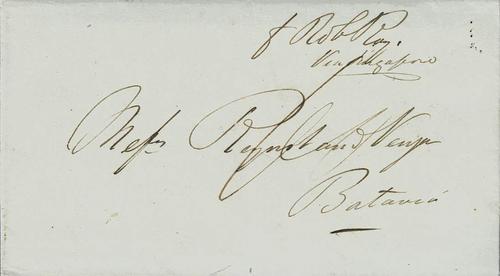 p Rob Roy.
Via Singapore
Messrs Reynst and Vinju
Batavia